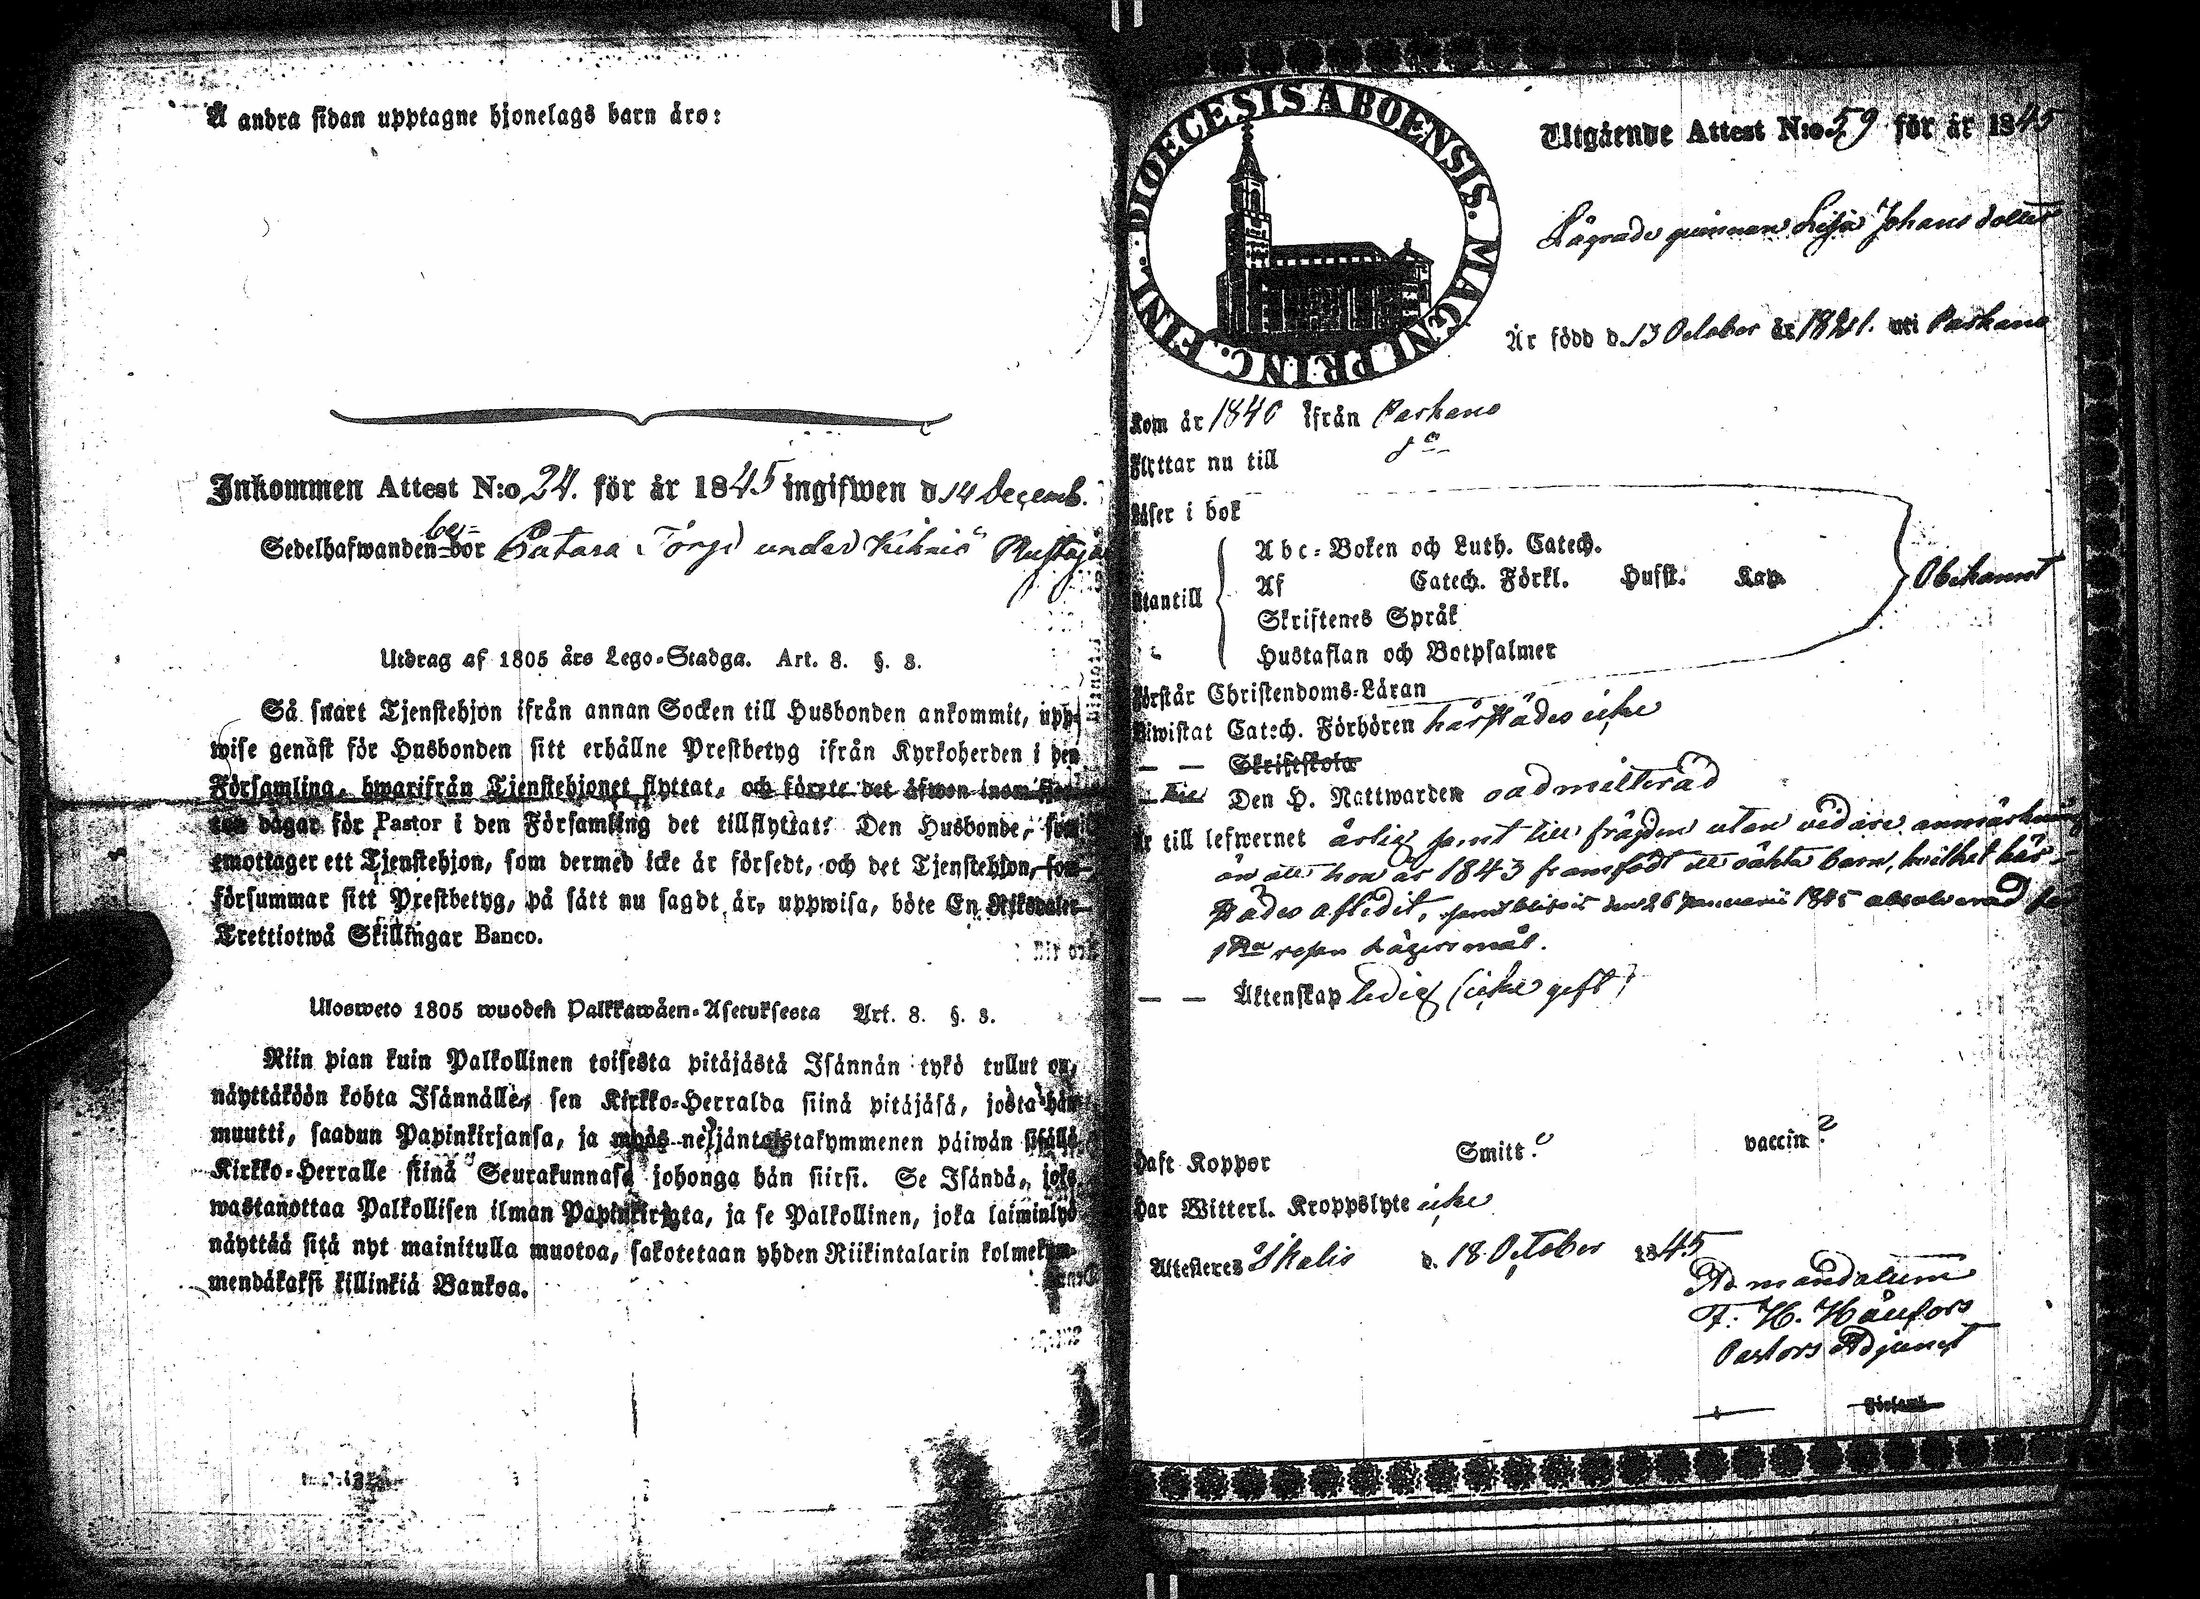 Å andra sidan upptagne hjonelags barn äro:
Inkommen Attest N:o 24. för år 1845 ingifwen d 14 Decemb.
be=
Sedelhafwanden bor Torp under Kihniö
Utdrag af 1805 års Lego-Stadga. Art. 8. §. 3.
Så snart Tjenstehjon ifrån annan Socken till Husbonden ankommit, upp-
wise genäst för Husbonden sitt erhållne Prestbetyg ifrån Kyrkoherden i den
Församling, hwarifrån Tjenstehjonet flyttat, och förete det äfwen inom
dagar för Pastor i den Församling det tillflyttat: Den Husbonde, som
emottager ett Tjenstehjon, som dermed icke är försedt, och det Tjenstehjon, som
försummar sitt Prestbetyg, på sätt nu sagdt är, uppwisa, böte En Riksdaler
Trettiotwå Skillingar Banco.
Ulosweto 1805 wuoden Palkkawäen-Asetuksesta Art. 8. §. 3.
Niin pian kuin Palkollinen toisesta pitäjästä Isännän tykö tullut on,
näyttäköön kohta Isännälle, sen Kirkko-Herralda siinä pitäjäsä, josta hän
muutti, saadun Papinkirjansa, ja myös neljäntoistakymmenen päiwän sisällä
Kirkko-Herralle siinä Seurakunnasa johonga hän siirsi. Se Isändä, joka
wastanottaa Palkollisen ilman Papinkirjata, ja se Palkollinen, joka laiminlyö
näyttää sitä nyt mainitulla muotoa, sakotetaan yhden Riikintalarin kolmekym-
mendäkaksi killinkiä Bankoa.
DIOECESIS ABOENSIS. MAGNI PRINC. FINL.
Utgående Attest N:o 59 för år 1845
Lägrade qvinnan Lisa Johans dotter
Är född d. 13 October år 1821. uti Parkano
Kom år 1840 ifrån Parkano
Flyttar nu till do
Läser i bok
Utantill
Abc-Boken och Luth. Catech.
Af Catech. Förkl. Husst. Kap.
Skriftenes Språk
Hustaflan och Botpsalmer
Obekannt
Förstår Christendoms-Läran
Biwistat Catech. Förhören härstädes icke
— — Skriftskola
Den H. Nattwarden oadmitterad
Är till lefwernet ärlig samt till frägden utan vidare anmärkning
än att hon år 1843 framfödt ett oäkta barn, hvilket här-
städes aflidit, samt blifvit den 26 Januarii 1845 absolverad för
1sta resan Lägersmål.
— — Äktenskap ledig (icke gift)
Haft Koppor Smitt. ? vaccin ?
Har Witterl. Kroppslyte icke
Attesteres Ikalis d. 18 October 1845
Ad mandatum
F. H. Hänfors
Pastors Adjunct
Församl.